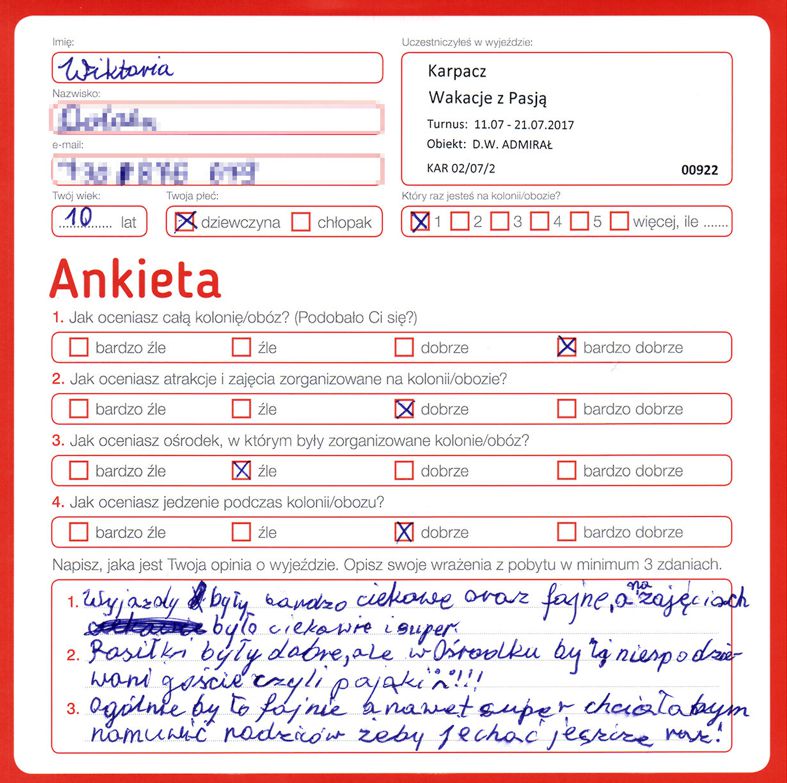 Imię:
Wiktoria
Nazwisko:
e-mail:
Twój wiek:
10 lat
Twoja płeć:
dziewczyna chłopak
Uczestniczyłeś w wyjeździe:
Karpacz
Wakacje z Pasją
Turnus: 11.07 - 21.07.2017
Obiekt: D.W. ADMIRAŁ
KAR 02/07/2 00922
Który raz jesteś na kolonii/obozie?
1 2 3 4 5 więcej, ile .......
Ankieta
1. Jak oceniasz całą kolonię/obóz? (Podobało Ci się?)
bardzo źle źle dobrze bardzo dobrze
2. Jak oceniasz atrakcje i zajęcia zorganizowane na kolonii/obozie?
bardzo źle źle dobrze bardzo dobrze
3. Jak oceniasz ośrodek, w którym były zorganizowane kolonie/obóz?
bardzo źle źle dobrze bardzo dobrze
4. Jak oceniasz jedzenie podczas kolonii/obozu?
bardzo źle źle dobrze bardzo dobrze
Napisz, jaka jest Twoja opinia o wyjeździe. Opisz swoje wrażenia z pobytu w minimum 3 zdaniach.
1. Wyjazdy były bardzo ciekawe oraz fajne, a na zajęciach
było ciekawie i super.
2. Posiłki były dobre, ale w Ośrodku były niespodzie-
wani goście czyli pająki!!!
3. Ogólnie było fajnie a nawet super chciałabym
namówić rodziców żeby jechać jeszcze raz!